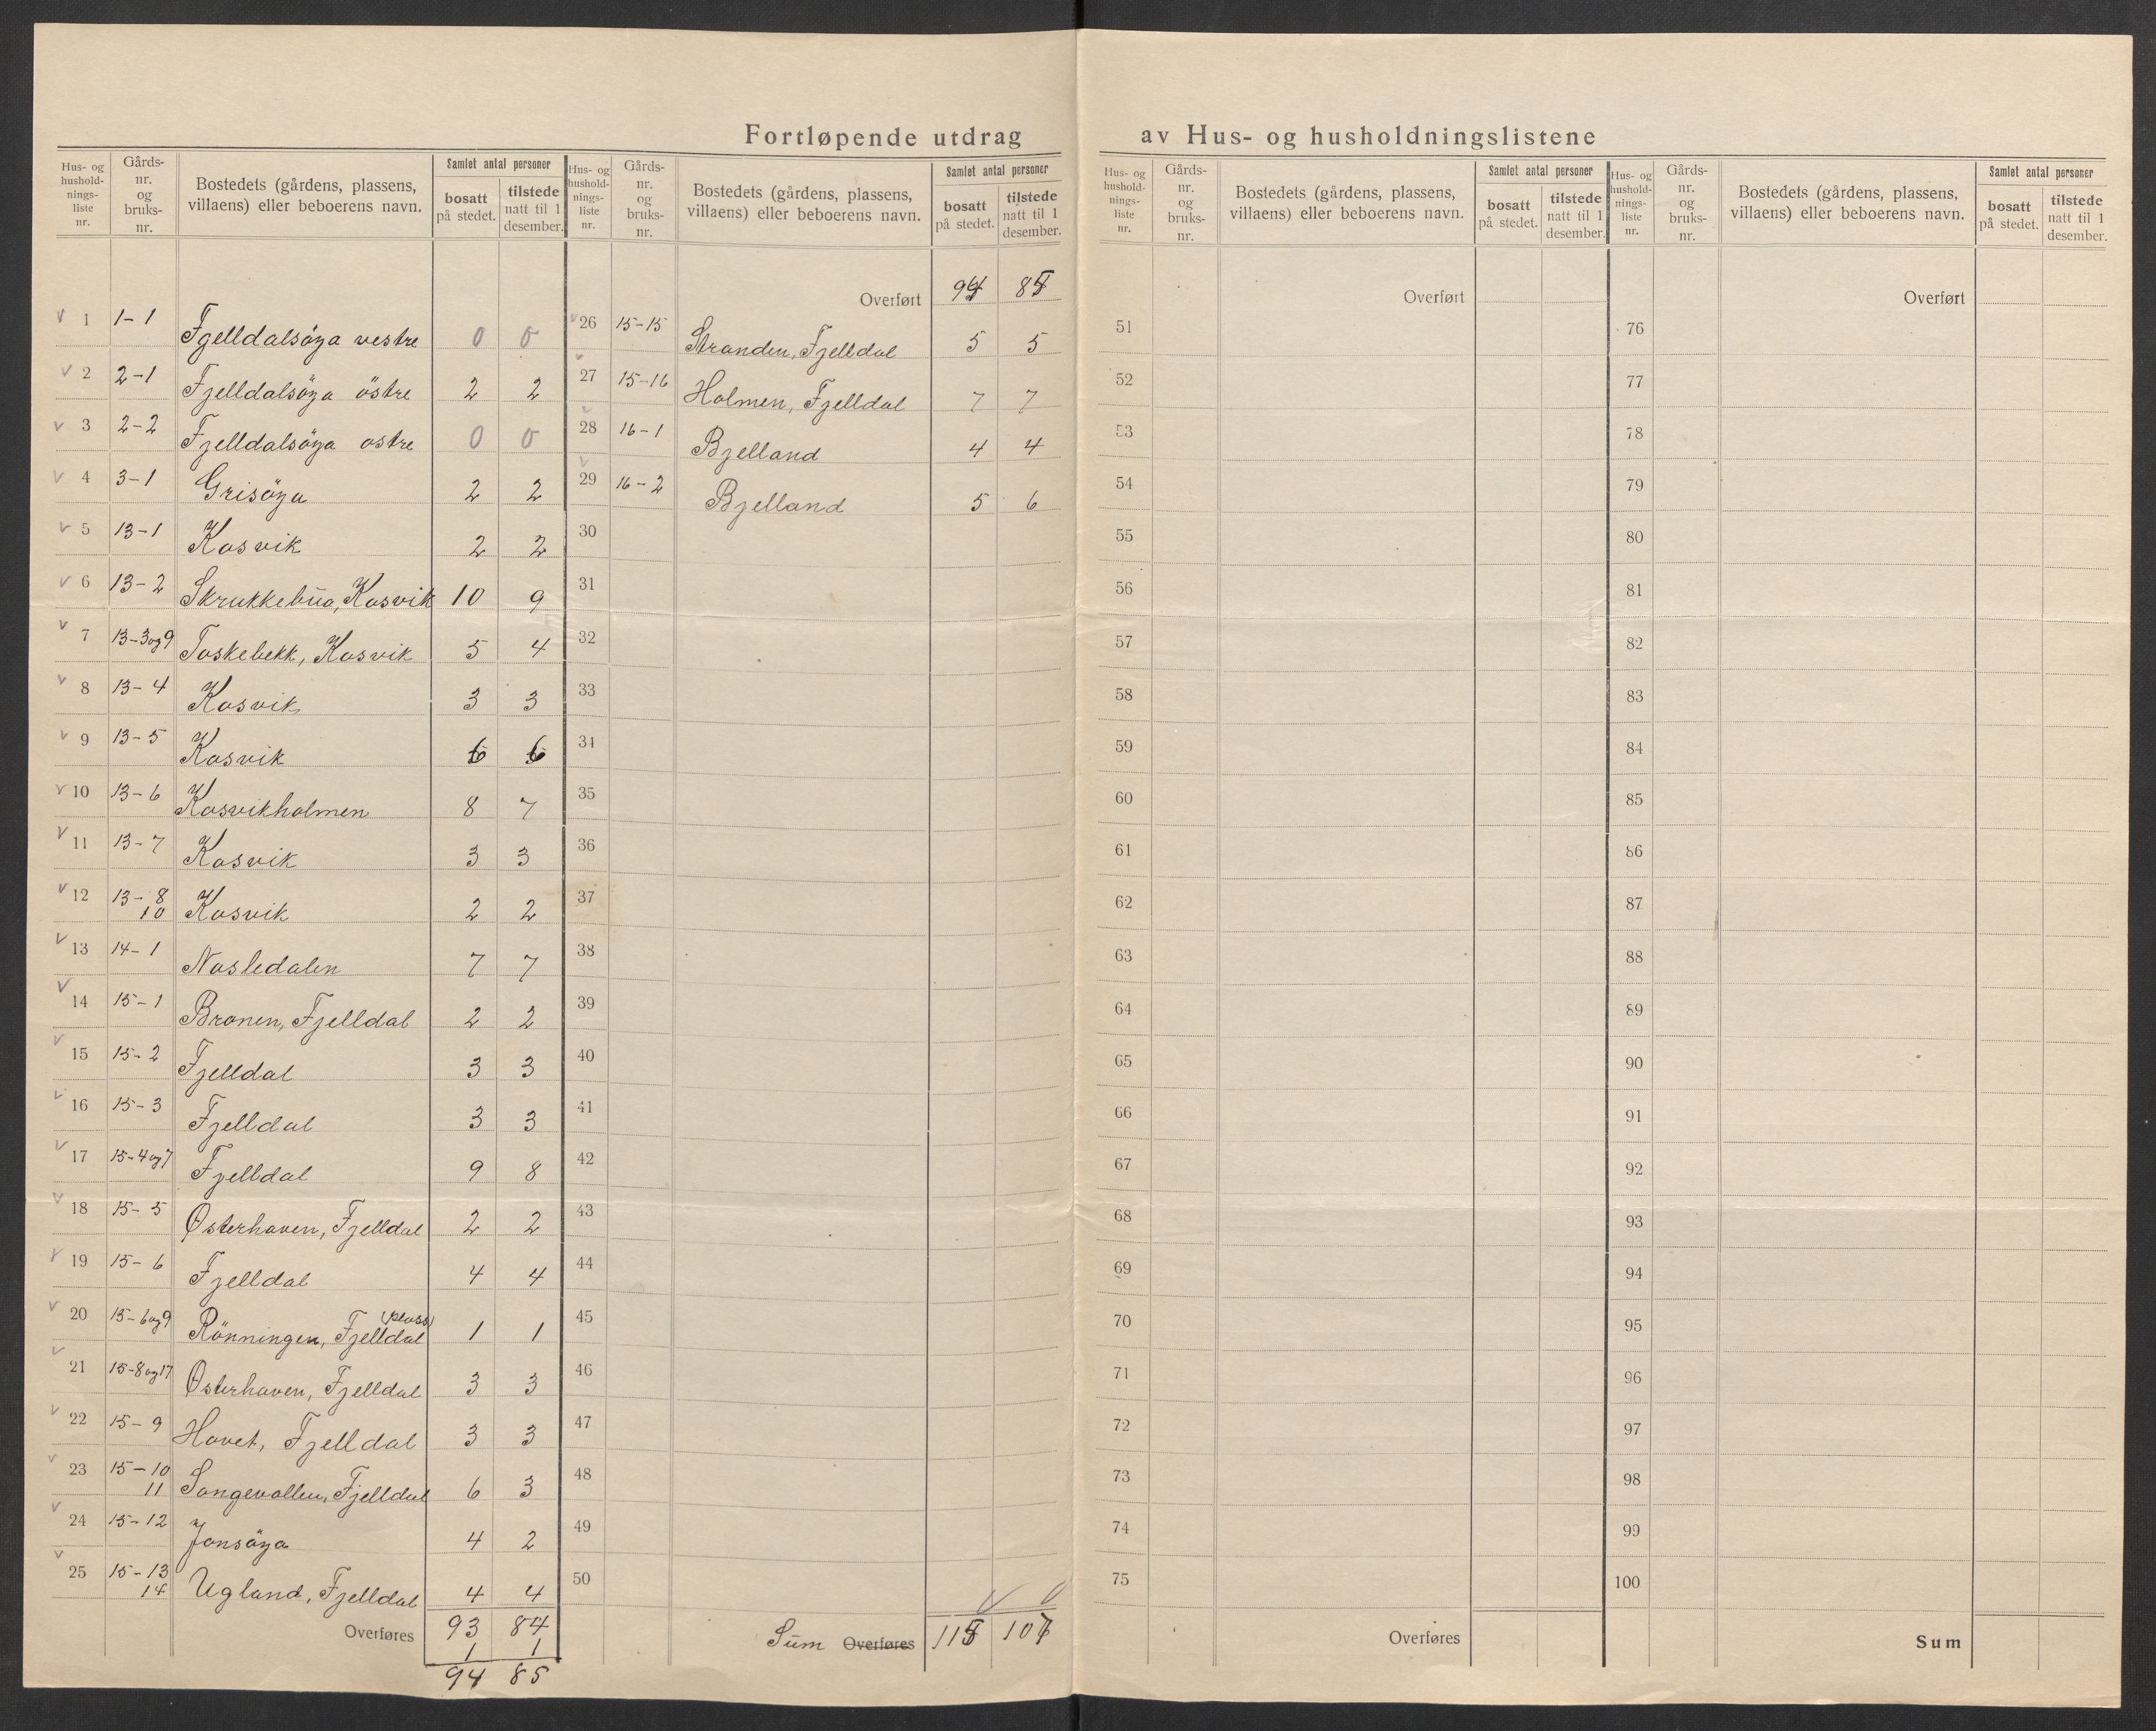 Fortløpende utdrag av Hus- og husholdningslistene
Hus- og husholdnings-liste nr. Gårds-nr. og bruks-nr. Bostedets (gårdens, plassens, villaens) eller beboerens navn. Samlet antal personer bosatt på stedet. tilstede natt til 1 desember.
1 1-1 Fjelldalsöya vestre 0 0
2 2-1 Fjelldalsöya östre 2 2
3 2-2 Fjelldalsöya ostre 0 0
4 3-1 Grisöya 2 2
5 13-1 Kosvik 2 2
6 13-2 Skrukkebua, Kosvik 10 9
7 13-3og9 Toskebekk, Kosvik 5 4
8 13-4 Kosvik 3 3
9 13-5 Kosvik 6 6
10 13-6 Kosvikholmen 8 7
11 13-7 Kosvik 3 3
12 13-8 10 Kosvik 2 2
13 14-1 Nasledalen 7 7
14 15-1 Bronen, Fjelldal 2 2
15 15-2 Fjelldal 3 3
16 15-3 Fjelldal 3 3
17 15-4og7 Fjelldal 9 8
18 15-5 Østerhaven, Fjelldal 2 2
19 15-6 Fjelldal 4 4
20 15-6og9 Rönningen, Fjelldal (plass) 1 1
21 15-8og17 Østerhaven, Fjelldal 3 3
22 15-9 Hovet, Fjelldal 3 3
23 15-10 11 Songevollen, Fjelldal 6 3
24 15-12 Jonsöya 4 2
25 15-13 14 Ugland, Fjelldal 4 4
Overføres 93 84
1 1
94 85
Hus- og husholdnings-liste nr. Gårds-nr. og bruks-nr. Bostedets (gårdens, plassens, villaens) eller beboerens navn. Samlet antal personer bosatt på stedet. tilstede natt til 1 desember.
Overført 94 85
26 15-15 Stranden, Fjelldal 5 5
27 15-16 Holmen, Fjelldal 7 7
28 16-1 Bjelland 4 4
29 16-2 Bjelland 5 6
30
31
32
33
34
35
36
37
38
39
40
41
42
43
44
45
46
47
48
49
50
Sum Overføres 115 107
Hus- og husholdnings-liste nr. Gårds-nr. og bruks-nr. Bostedets (gårdens, plassens, villaens) eller beboerens navn. Samlet antal personer bosatt på stedet. tilstede natt til 1 desember.
Overført
51
52
53
54
55
56
57
58
59
60
61
62
63
64
65
66
67
68
69
70
71
72
73
74
75
Overføres
Hus- og husholdnings-liste nr. Gårds-nr. og bruks-nr. Bostedets (gårdens, plassens, villaens) eller beboerens navn. Samlet antal personer bosatt på stedet. tilstede natt til 1 desember.
Overført
76
77
78
79
80
81
82
83
84
85
86
87
88
89
90
91
92
93
94
95
96
97
98
99
100
Sum